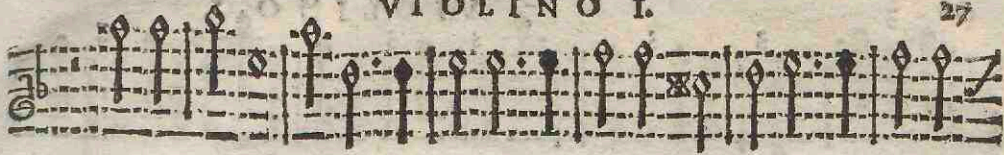 VIOLINO I. 27